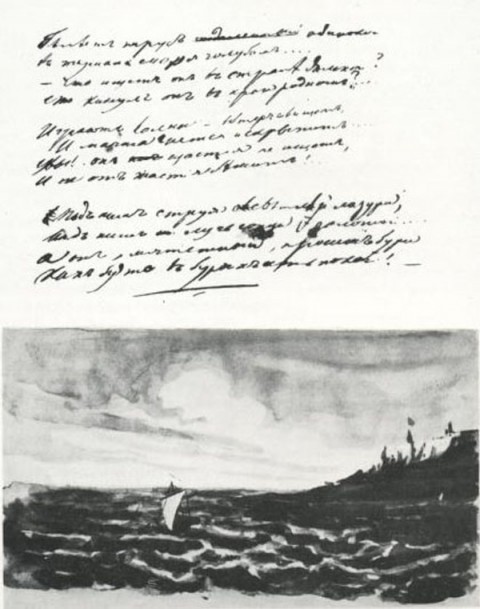 Бѣлѣетъ парусъ одинокой
въ туманѣ моря голубомъ....
– что ищетъ онъ въ странѣ далекой?
что кинулъ онъ въ краю родномъ?...
Играютъ волны –
И мачта гнется и скрыпитъ....
Увы! онъ счастія не ищетъ,
И не отъ счастія бѣжитъ! –
Подъ нимъ струя свѣтлѣй лазури,
надъ нимъ лучъ золотой....
а онъ, мятежный, проситъ бури
Какъ будто въ буряхъ есть покой! –